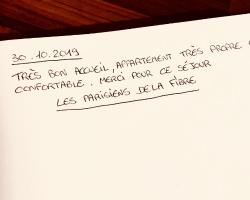 30.10.2019
TRÈS BON ACCUEIL, APPARTEMENT TRÈS PROPRE
CONFORTABLE. MERCI POUR CE SÉJOUR
LES PARISIENS DE LA FIBRE